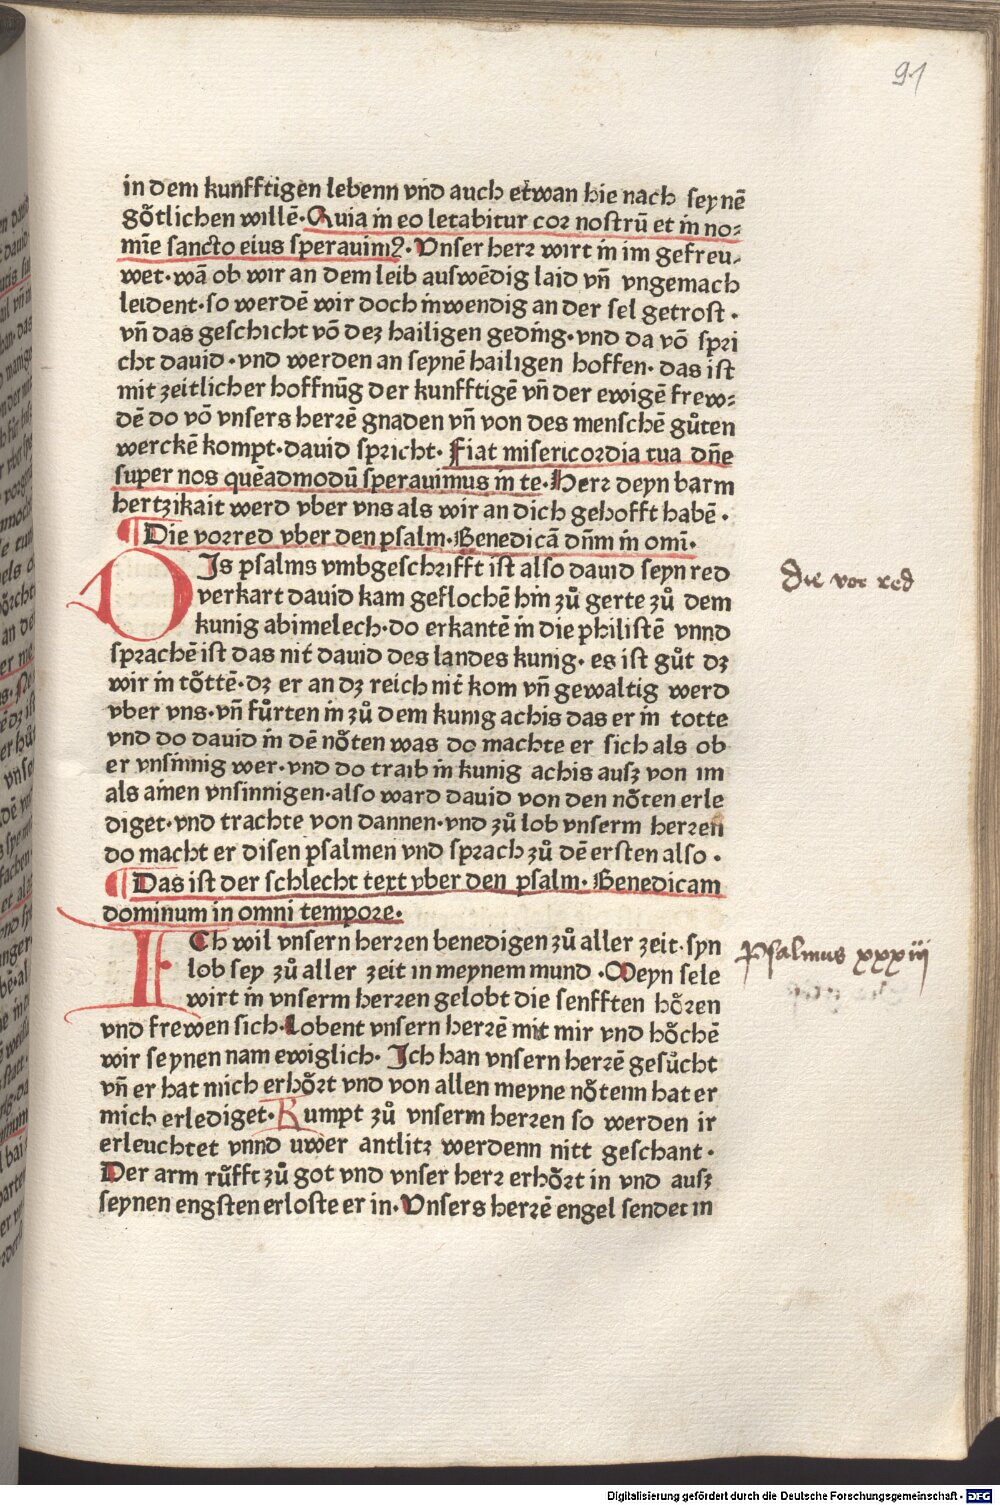 91
in dem kunfftigen lebenn vnd auch etwan hie nach seynē
gőtlichen willē· Quia in eo letabitur cor nostrū et in no⸗
mīe sancto eius speravim⁹· Vnser herr wirt in im gefreu⸗
wet· wā ob wir an dem leib auswēdig laid vn̄ vngemach
leident· so werdē wir doch inwendig an der sel getrost ·
vn̄ das geschicht vō dez hailigen geding· vnd da vō spri
cht dauid · vnd werden an seynē hailigen hoffen· das ist
mit zeitlicher hoffnūg der kunfftigē vn̄ der ewigē frew⸗
dē do vō vnsers herrē gnaden vn̄ von des menschē gůten
werckē kompt· dauid spricht· Fiat misericordia tua dn̄e
super nos quēadmodū sperauimus in te· Herr deyn barm
hertzikait werd vber vns als wir an dich gehofft habē ·
¶ Die vorred vber den psalm· Benedicā dn̄m in omī·
DJs psalms vmbgeschrifft ist also dauid seyn red
verkart dauid kam geflochē hin zů gerte zů dem
kunig abimelech· do erkantē in die philistē vnnd
sprachē ist das nit dauid des landes kunig· es ist gůt dz
wir in tőttē· dz er an dz reich nit kom vn̄ gewaltig werd
vber vns· vn̄ fůrten in zů dem kunig achis das er in totte
vnd do dauid in dē nőten was do machte er sich als ob
er vnsinnig wer· vnd do traib in kunig achis ausz von im
als ainen vnsinnigen· also ward dauid von den nőten erle
diget· vnd trachte von dannen· vnd zů lob vnserm herren
do macht er disen psalmen vnd sprach zů dē ersten also ·
¶ Das ist der schlecht text vber den psalm· Benedicam
dominum in omni tempore·
ICh wil vnsern herren benedigen zů aller zeit· syn
lob sey zů aller zeit in meynem mund · Meyn sele
wirt in vnserm herren gelobt die senfften hőren
vnd frewen sich· Lobent vnsern herrē mit mir vnd hőchē
wir seynen nam ewiglich· Ich han vnsern herrē gesůcht
vn̄ er hat mich erhőrt vnd von allen meyne nőtenn hat er
mich erlediget· Kumpt zů vnserm herren so werden ir
erleuchtet vnnd uwer antlitz werdenn nitt geschant·
Der arm růfft zů got vnd vnser herr erhőrt in vnd ausz
seynen engsten erloste er in· Vnsers herrē engel sendet in
Die vor red
Psalmus xxxiij
Digitalisierung gefördert durch die Deutsche Forschungsgemeinschaft - DFG